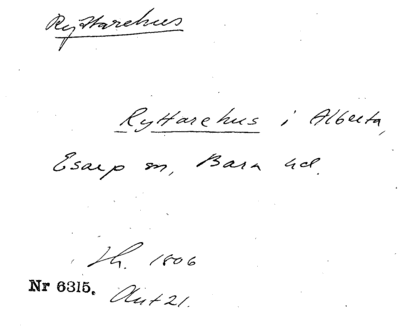 Ryttarehus
Ryttarehus i Alberta,
Esarp sn, Bara hd.
Jh. 1806
Nr 6315. Ant 21.